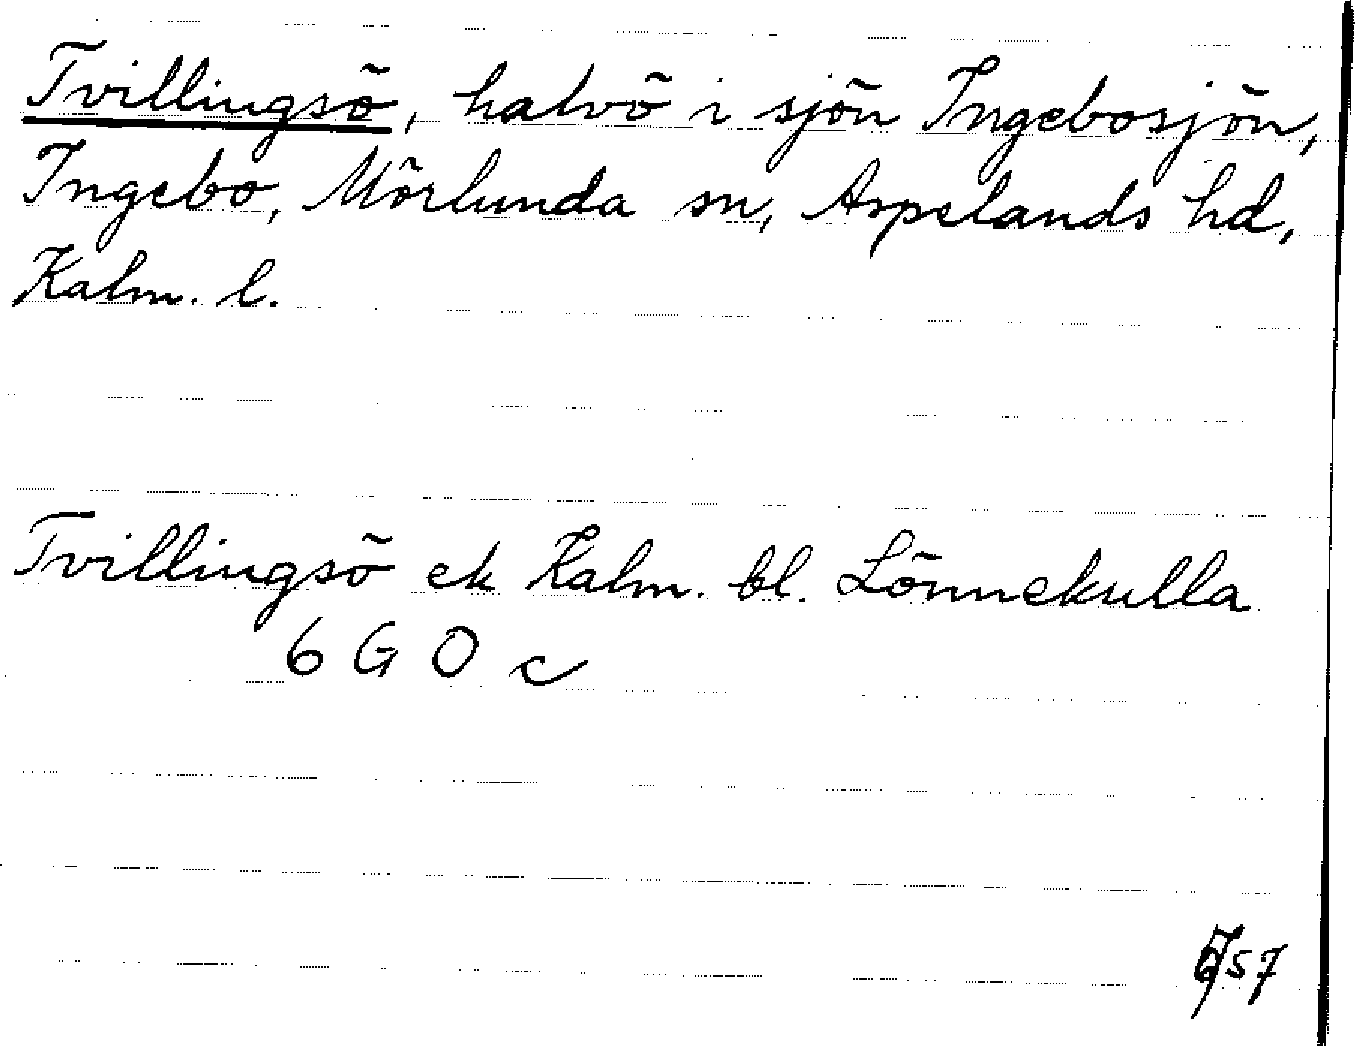 Tvillingsö, halvö i sjön Ingebosjön,
Ingebo, Mörlunda sn, Aspelands hd,
Kalm. l.
Tvillingsö ek Kalm. bl. Lönnekulla
6 G O c
757